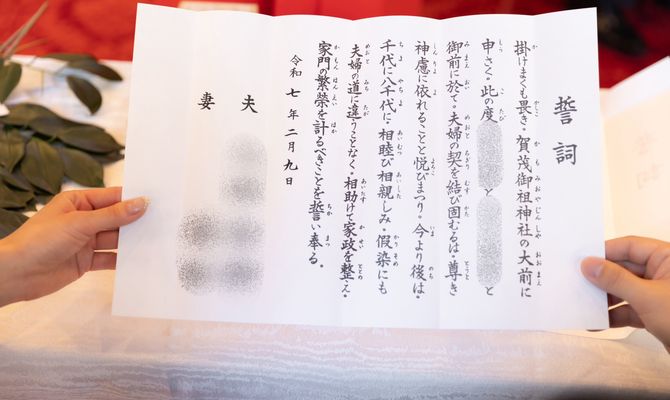 誓詞
掛けまくも畏き。賀茂御祖神社の大前に
申さく。此の度　と　と
御前に於て。夫婦の契を結び固むるは。尊き
神慮に依れることと悦びまつり。今より後は。
千代に八千代に。相睦び相親しみ。假染にも
夫婦の道に違うことなく。相助けて家政を整え。
家門の繁榮を計るべきことを誓い奉る。
令和七年二月九日
夫
妻